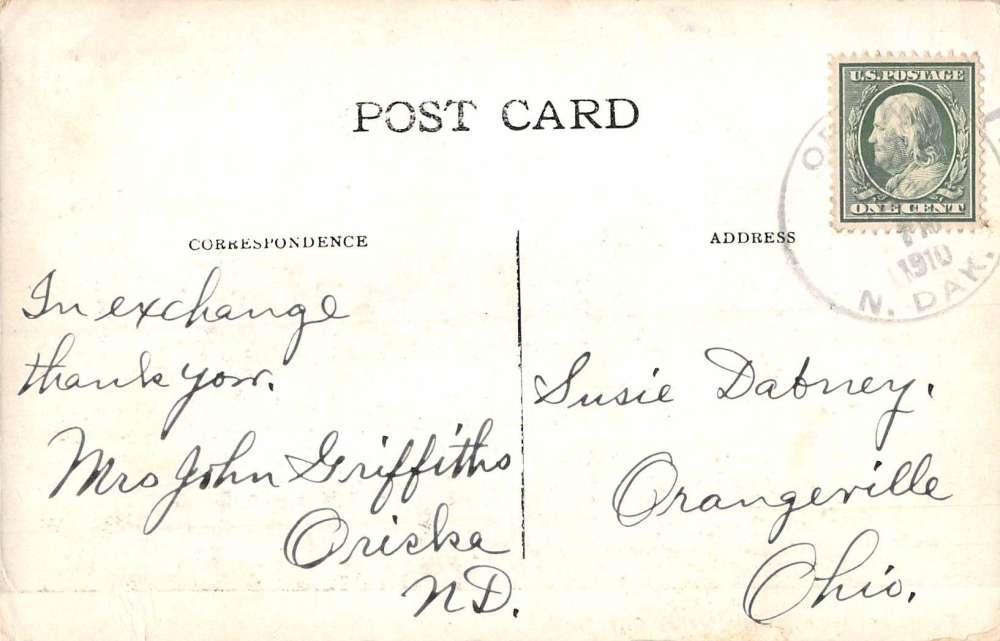 POST CARD
U.S. POSTAGE
ONE CENT
1910
N. DAK.
CORRESPONDENCE
ADDRESS
In exchange
thank you.
Mrs John Griffiths
Oriska
ND.
Susie Dabney.
Orangeville
Ohio.